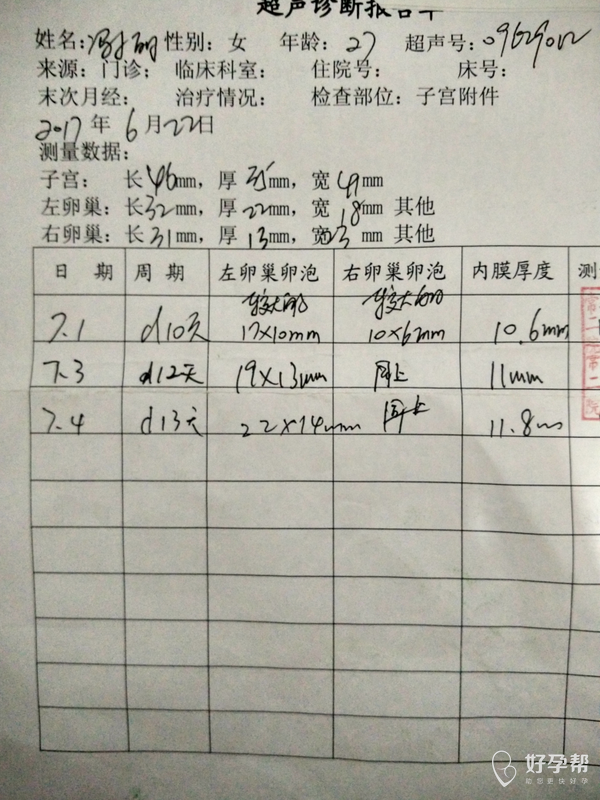 超声诊断报告单
姓名: 性别: 女 年龄: 27 超声号: 09629012
来源: 门诊; 临床科室: 住院号: 床号:
末次月经: 治疗情况: 检查部位: 子宫附件
2017年 6月22日
测量数据:
子宫: 长46mm, 厚35mm, 宽49mm
左卵巢: 长32mm, 厚22mm, 宽18mm 其他
右卵巢: 长31mm, 厚13mm, 宽23 mm 其他
日 期 周 期 左卵巢卵泡 右卵巢卵泡 内膜厚度 测
较大的 较大的
7.1 d10天 17×10mm 10×6mm 10.6mm
7.3 d12天 19×13mm 同上 11mm
7.4 d13天 22×14mm 同上 11.8mm
好孕帮
给您更快好孕